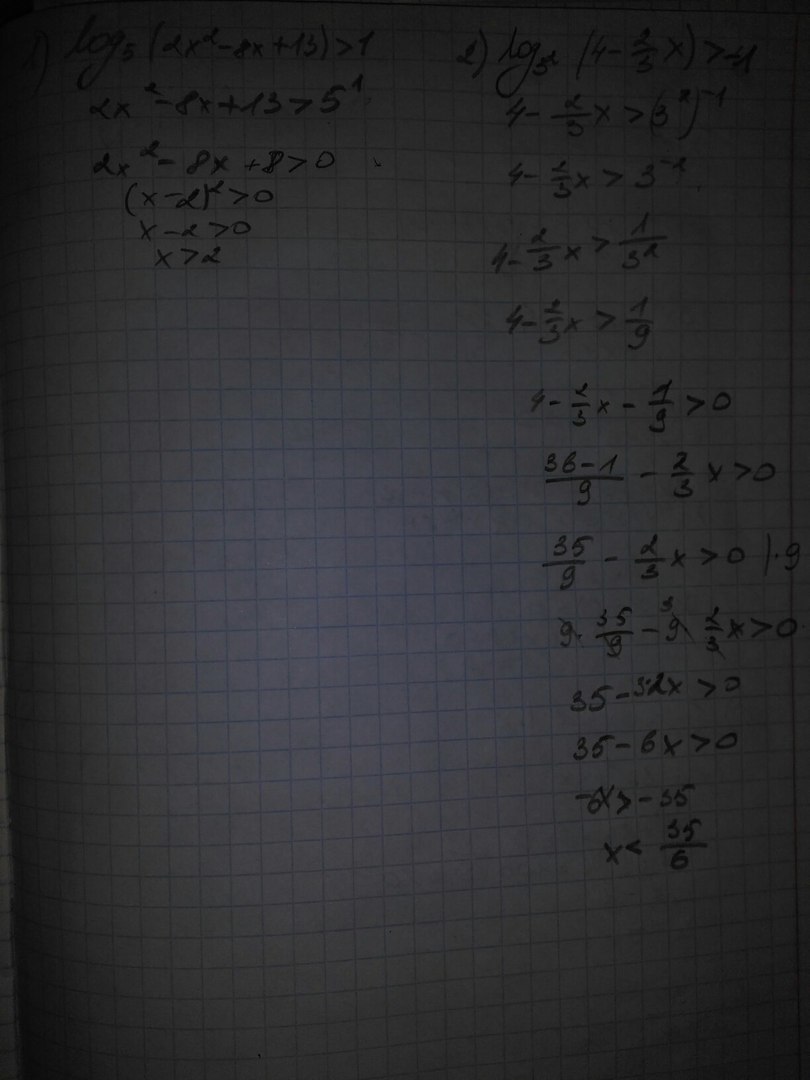 1) log₅ (2x² - 8x + 13) > 1
2x² - 8x + 13 > 5¹
2x² - 8x + 8 > 0
(x - 2)² > 0
x - 2 > 0
x > 2
2) log₃² (4 - 2/3 x) > -1
4 - 2/3 x > (3²)⁻¹
4 - 2/3 x > 3⁻²
4 - 2/3 x > 1/3²
4 - 2/3 x > 1/9
4 - 2/3 x - 1/9 > 0
36-1/9 - 2/3 x > 0
35/9 - 2/3 x > 0 | · 9
9 · 35/9 - 9³ · 2/3 x > 0
35 - 3·2x > 0
35 - 6x > 0
-6x > -35
x < 35/6